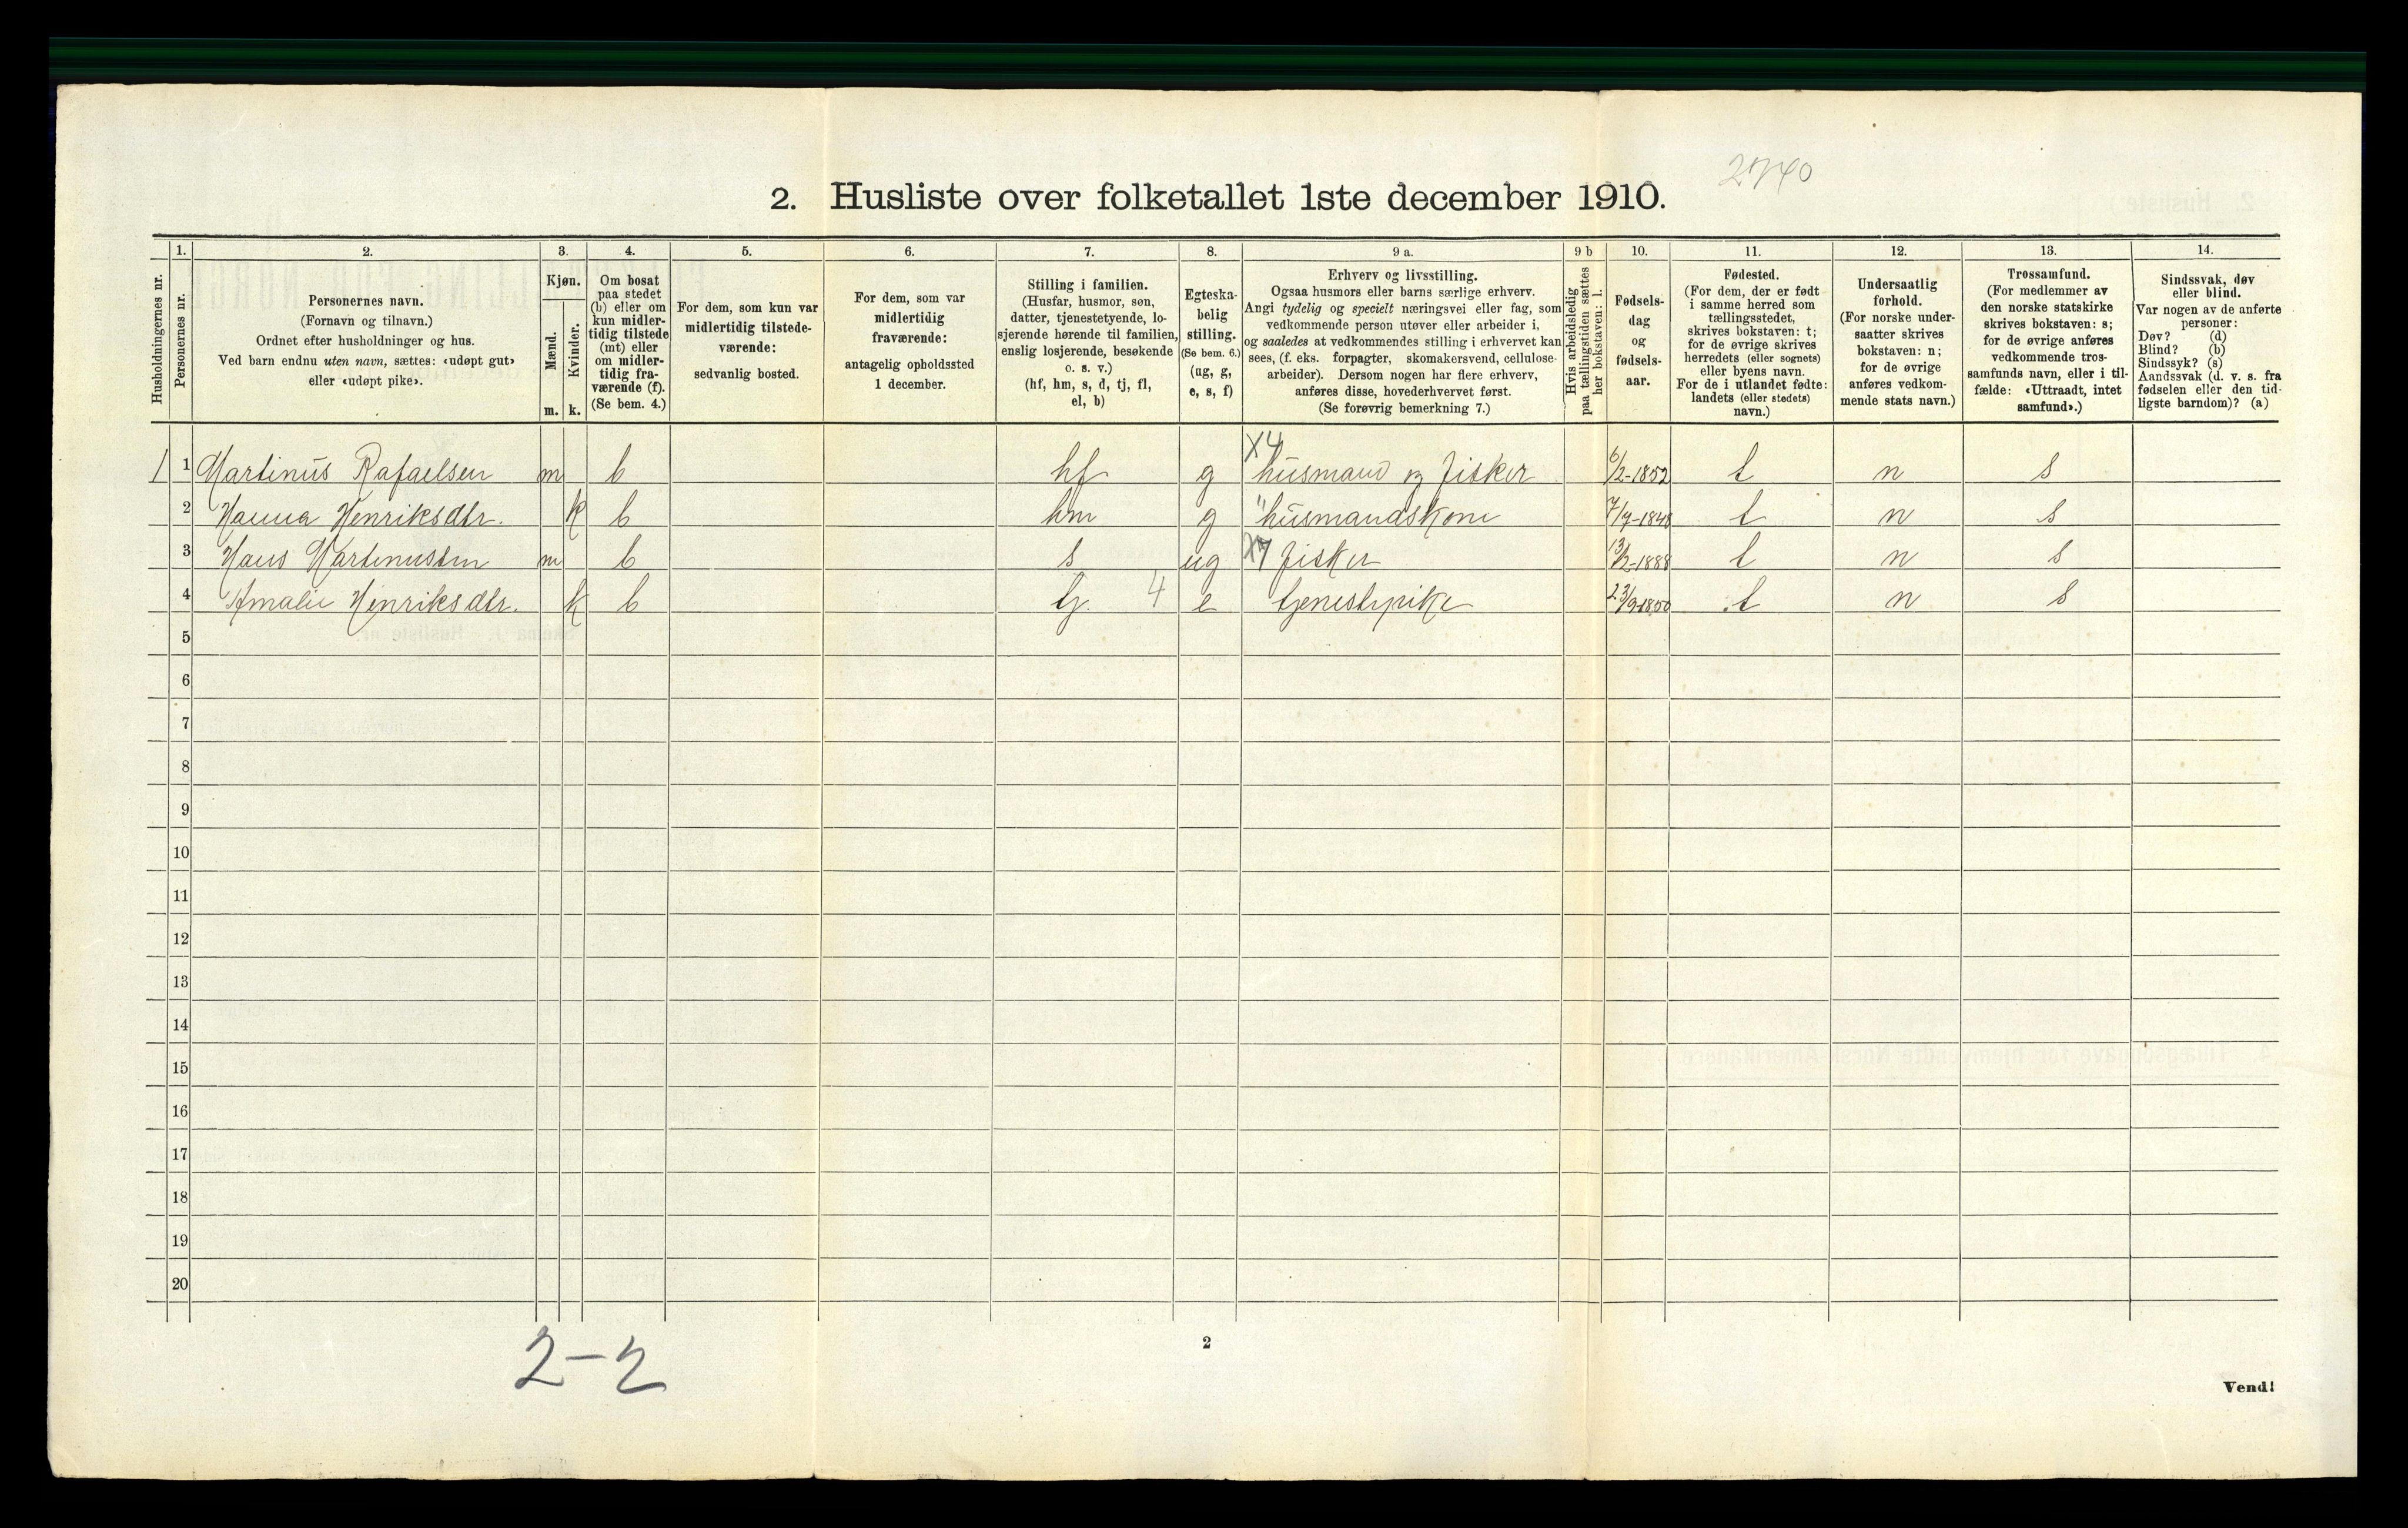 2740
2. Husliste over folketallet 1ste december 1910.
Husholdningernes nr.
1.
Personernes nr.
2.
Personernes navn.
(Fornavn og tilnavn.)
Ordnet efter husholdninger og hus.
Ved barn endnu uten navn, sættes: «udøpt gut»
eller «udøpt pike».
3.
Kjøn.
Mænd.
Kvinder.
m. k.
4.
Om bosat
paa stedet
(b) eller om
kun midler-
tidig tilstede
(mt) eller
om midler-
tidig fra-
værende (f).
(Se bem. 4.)
5.
For dem, som kun var
midlertidig tilstede-
værende:
sedvanlig bosted.
6.
For dem, som var
midlertidig
fraværende:
antagelig opholdssted
1 december.
7.
Stilling i familien.
(Husfar, husmor, søn,
datter, tjenestetyende, lo-
sjerende hørende til familien,
enslig losjerende, besøkende
o. s. v.)
(hf, hm, s, d, tj, fl,
el, b)
8.
Egteska-
belig
stilling.
(Se bem. 6.)
(ug, g,
e, s, f)
9 a.
Erhverv og livsstilling.
Ogsaa husmors eller barns særlige erhverv.
Angi tydelig og specielt næringsvei eller fag, som
vedkommende person utøver eller arbeider i,
og saaledes at vedkommendes stilling i erhvervet kan
sees, (f. eks. forpagter, skomakersvend, cellulose-
arbeider). Dersom nogen har flere erhverv,
anføres disse, hovederhvervet først.
(Se forøvrig bemerkning 7.)
9 b
Hvis arbeidsledig
paa tællingstiden sættes
her bokstaven: l.
10.
Fødsels-
dag
og
fødsels-
aar.
11.
Fødested.
(For dem, der er født
i samme herred som
tællingsstedet,
skrives bokstaven: t;
for de øvrige skrives
herredets (eller sognets)
eller byens navn.
For de i utlandet fødte:
landets (eller stedets)
navn.)
12.
Undersaatlig
forhold.
(For norske under-
saatter skrives
bokstaven: n;
for de øvrige
anføres vedkom-
mende stats navn.)
13.
Trossamfund.
(For medlemmer av
den norske statskirke
skrives bokstaven: s;
for de øvrige anføres
vedkommende tros-
samfunds navn, eller i til-
fælde: «Uttraadt, intet
samfund».)
14.
Sindssvak, døv
eller blind.
Var nogen av de anførte
personer:
Døv? (d)
Blind? (b)
Sindssyk? (s)
Aandssvak (d. v. s. fra
fødselen eller den tid-
ligste barndom)? (a)
1 1 Martinus Rafaelsen m b hf g X4 husmand og fisker 6/2-1852 t n s
2 Hanna Henriksdtr. k b hm g " husmandskone 7/7-1848 t n s
3 Hans Martinussen m b s ug X7 fisker 13/2-1888 t n s
4 Amalie Henriksdtr. k b tj. 4 e tjenestepike 23/9-1850 t n s
5
6
7
8
9
10
11
12
13
14
15
16
17
18
19
20
2-2
2
Vend!